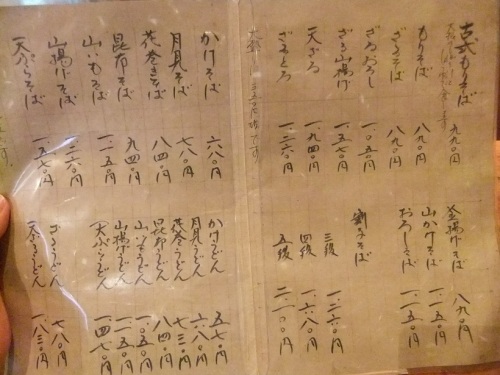 古式もりそば 九九〇円
もりそば 八九〇円
ざるそば 八九〇円
ざるおろし 一、〇五〇円
ざる山揚げ 一、五七〇円
天ざる 一、九四〇円
ざるとろ 一、二六〇円
釜揚げそば 八九〇円
山かけそば 一、一五〇円
おろしそば 一、一五〇円
割子そば
三段 一、二六〇円
四段 一、六八〇円
五段 二、一〇〇円
かけそば 六八〇円
月見そば 七八〇円
花巻きそば 八四〇円
昆布そば 九四〇円
山いもそば 一、一五〇円
山揚げそば 一、二六〇円
天ぷらそば 一、五七〇円
かけうどん 五七〇円
月見うどん 六八〇円
花巻うどん 七三〇円
昆布うどん 八四〇円
山いもうどん 一、〇五〇円
山揚げうどん 一、一五〇円
天ぷらうどん 一、四七〇円
ざるうどん 七八〇円
天ざるうどん 一、八三〇円